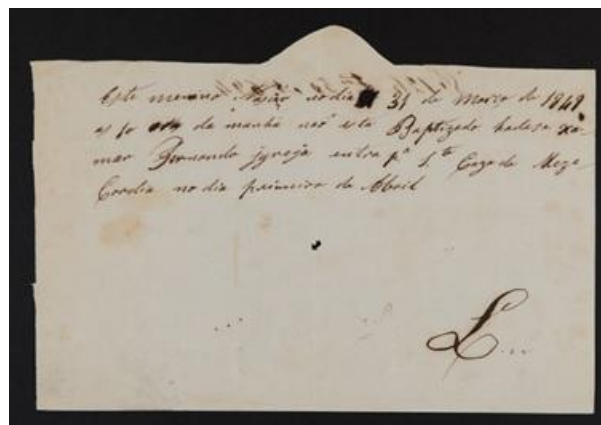 Este menino Nasceo no dia 31 de Março de 1849
as 10 da manhã naõ esta Baptizado hadese xa-
mar Bernardo jgreja entra pª Sta Caza da Meze-
Cordia no dia primeiro de Abril
L...